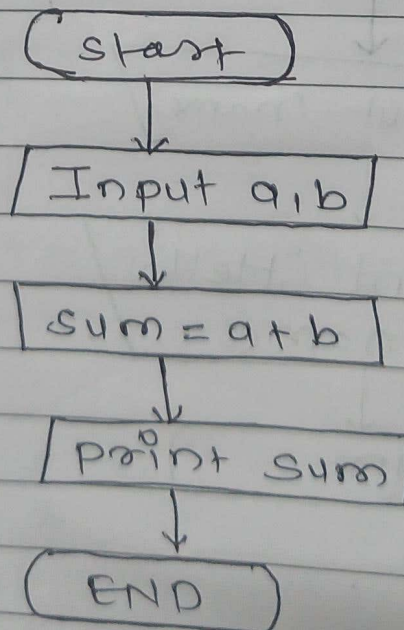 Start
Input a, b
Sum = a + b
Print Sum
END